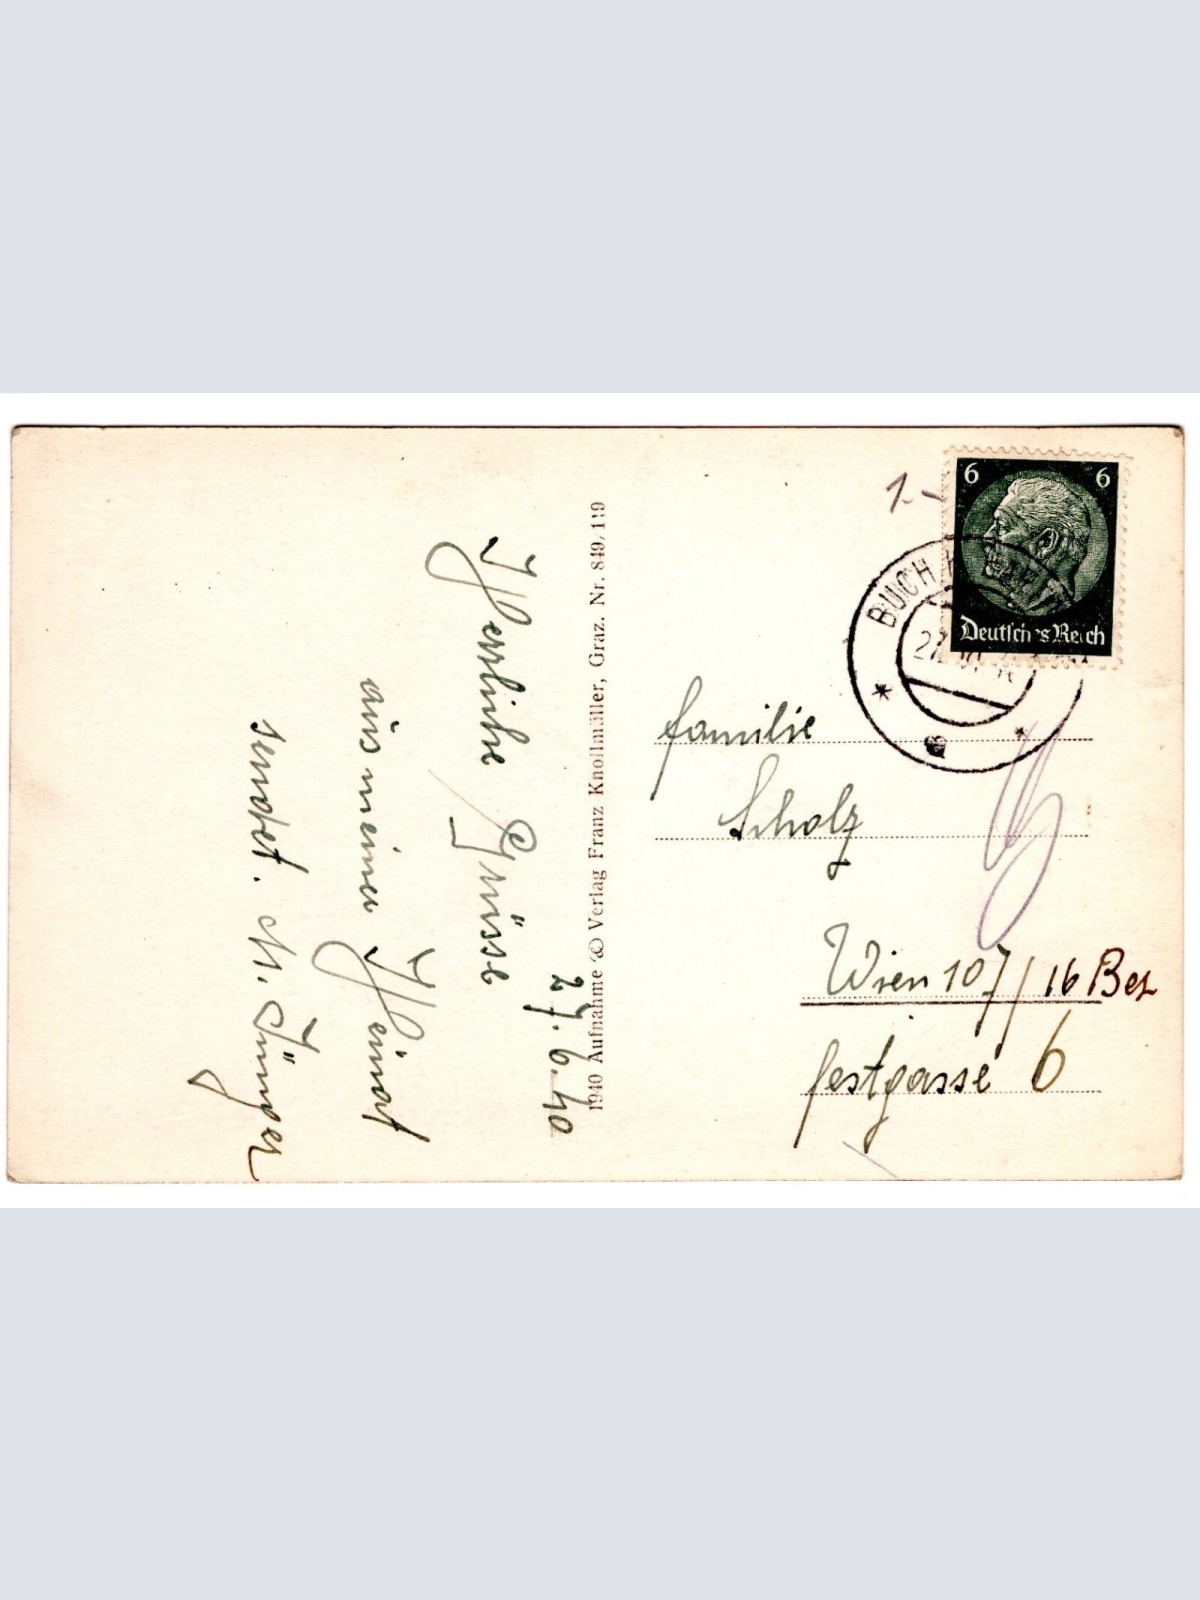 27.6.40
Herzliche Grüsse
aus meiner Heimat
sendet. M. Jünger
1940 Aufnahme u Verlag Franz Knollmüller, Graz. Nr. 849/119
1.-
6 6
Deutsches Reich
BUCH
27
Familie
Scholz
Wien 107/16 Bez
Festgasse 6